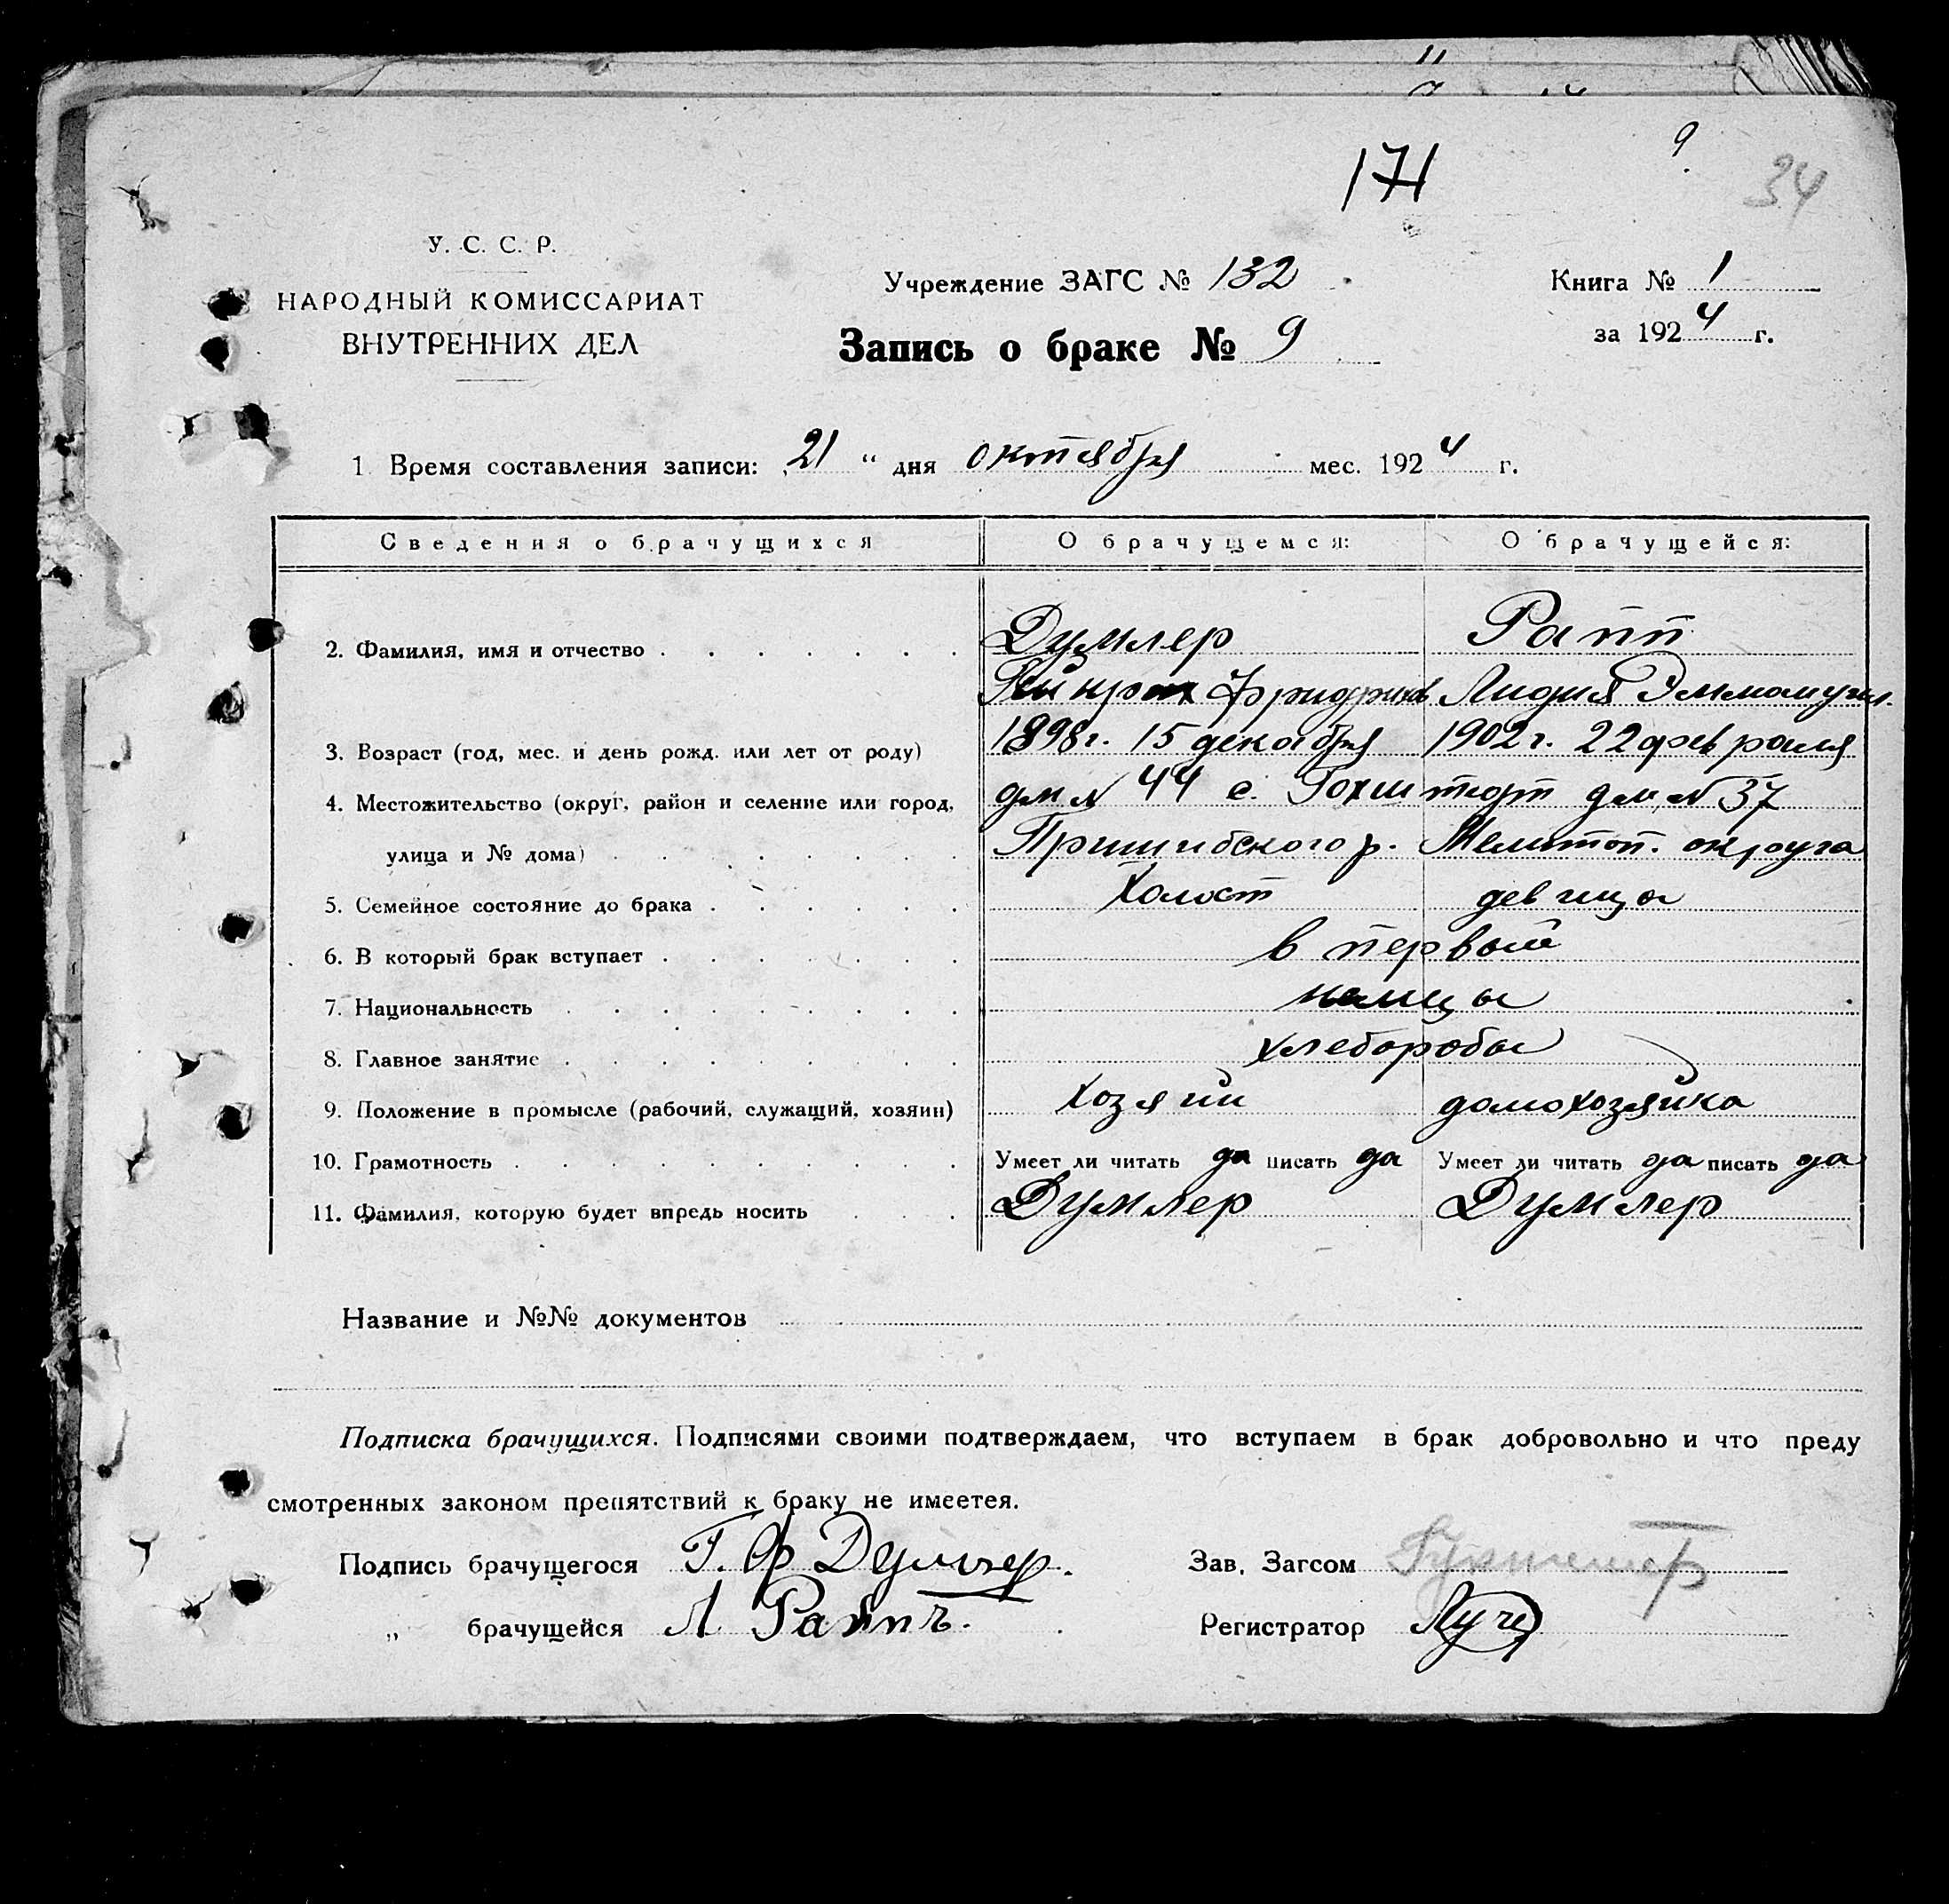 171
9
34
У. С. С. Р.
НАРОДНЫЙ КОМИССАРИАТ
ВНУТРЕННИХ ДЕЛ
Учреждение ЗАГС № 132
Запись о браке № 9
Книга № 1
за 1924 г.
1 Время составления записи: 21 “ дня октября мес. 1924 г.
Сведения о брачущихся О брачущемся: О брачущейся:
2. Фамилия, имя и отчество Думлер Рапп
Гейнрих Фридрихов. Лидия Эммануил.
3. Возраст (год, мес. и день рожд. или лет от роду) 1898 г. 15 декабря 1902 г. 22 февраля
4. Местожительство (округ, район и селение или город, дм № 44 с. Гохштедт дм № 37
улица и № дома) Пришибского р. Мелитоп. округа
5. Семейное состояние до брака холост девица
6. В который брак вступает в первый
7. Национальность немцы
8. Главное занятие хлеборобы
9. Положение в промысле (рабочий, служащий, хозяин) хозяин домохозяйка
10. Грамотность Умеет ли читать да писать да Умеет ли читать да писать да
11. Фамилия, которую будет впредь носить Думлер Думлер
Название и №№ документов
Подписка брачущихся. Подписями своими подтверждаем, что вступаем в брак добровольно и что преду
смотренных законом препятствий к браку не имеетея.
Подпись брачущегося Г. Ф Думлер. Зав. Загсом
„ брачущейся Л. Раппъ. Регистратор